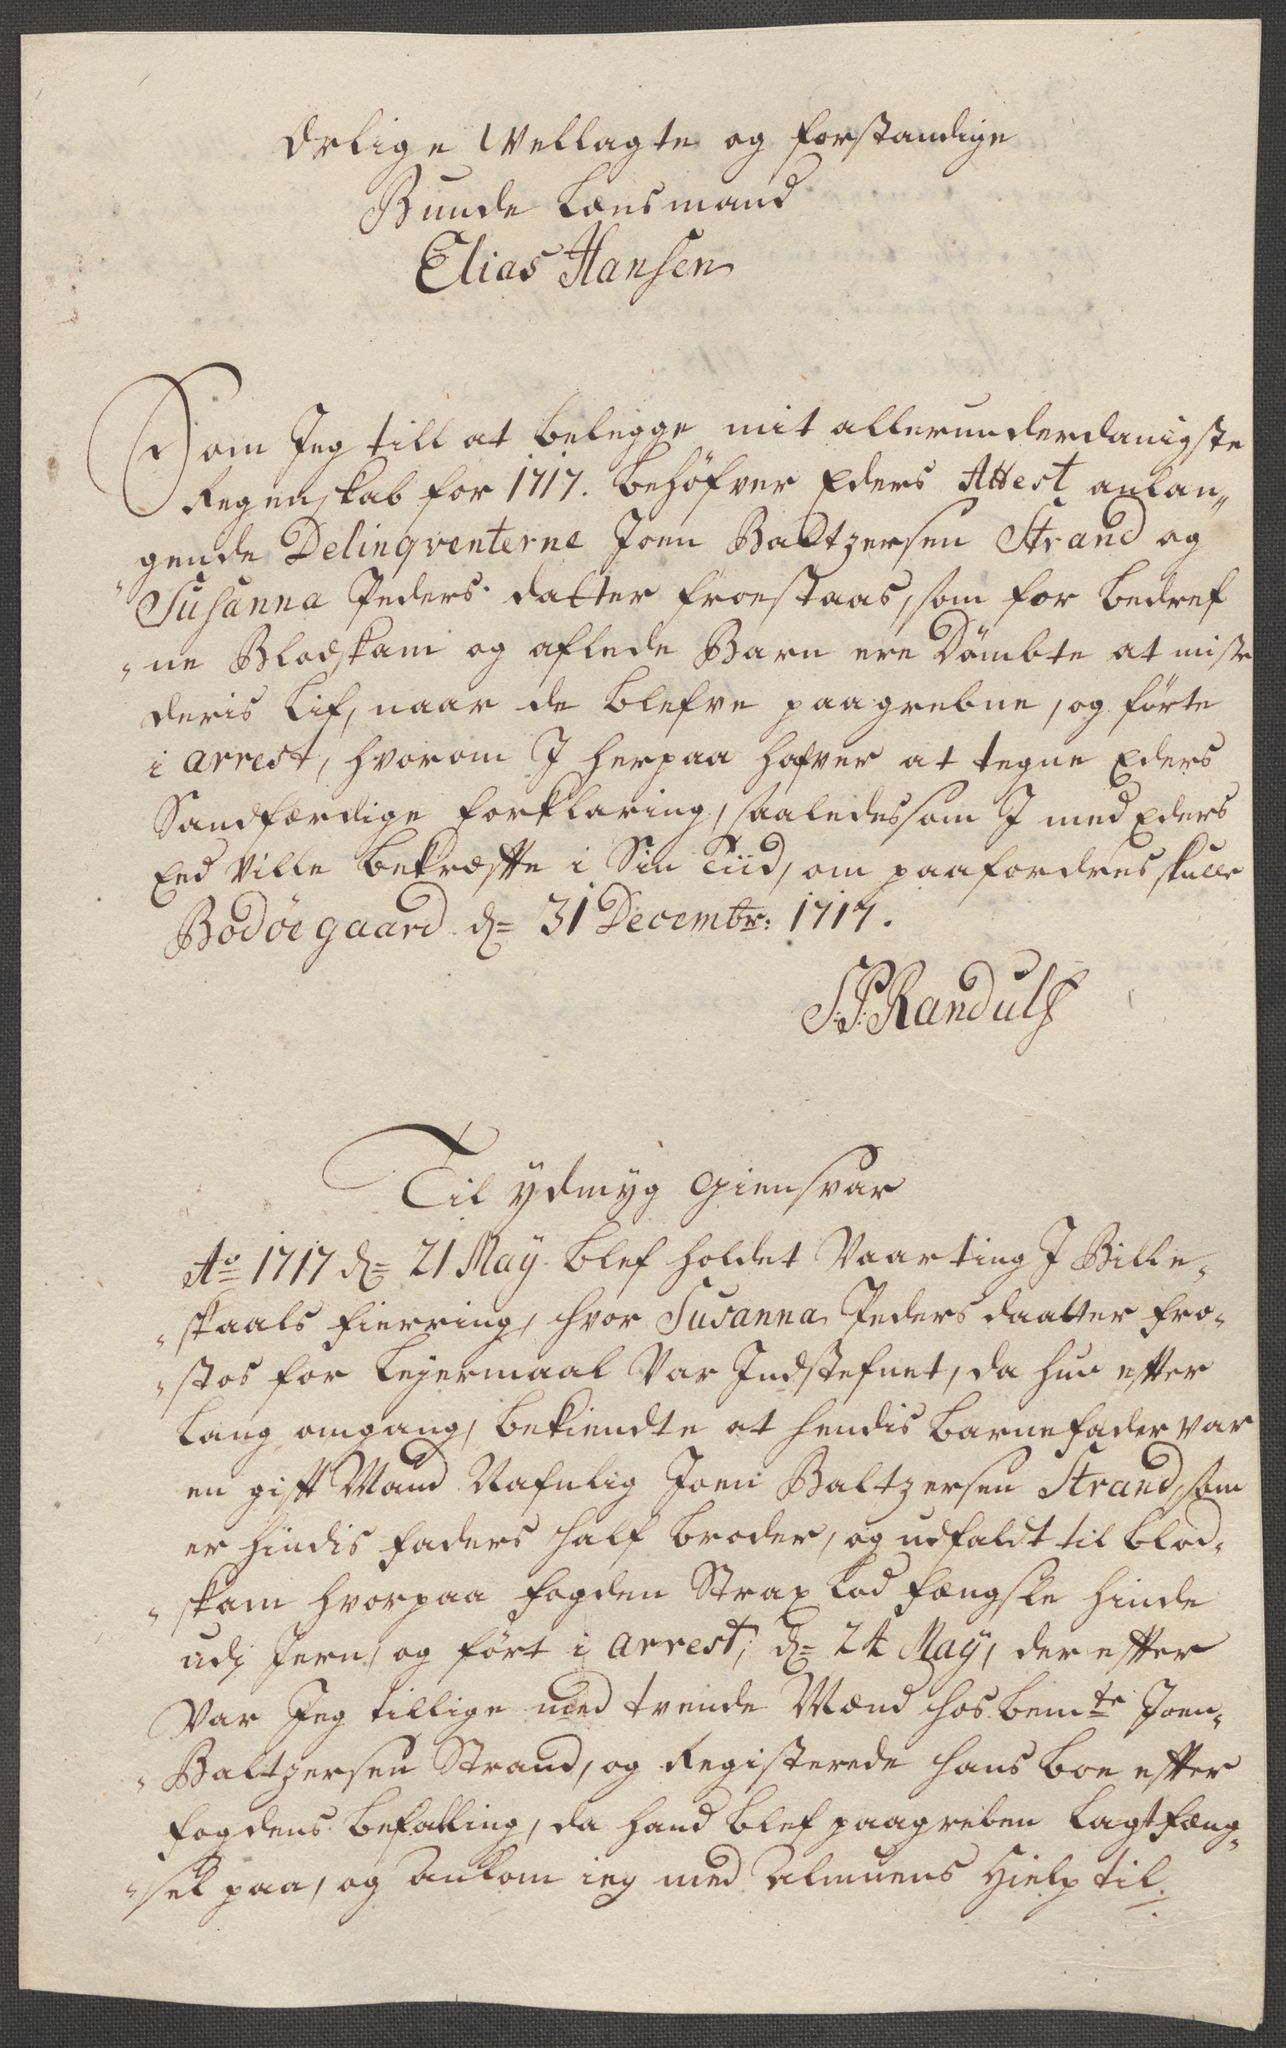 Ærlige Wellagte og forstandige
Bunde Lænsmand
Elias Hansen
Som Jeg till at belegge mit allerunderdanigste
Regenskab for 1717. behöfver Eders Attest anlan„
gende Delinqventerne Joen Baltzersen Strand og
Susanna Peders datter Froestaas, som for bedref
„ne Blodskam og aflede Barn ere Dömbte at miste
deris Lif, naar de blefve paagrebne, og förte
i arrest, hvorom I herpaa hafver at tegne Eders
Sandfærdige forklaring, saaledes som I med Eders
Eed ville bekræffte i Sin Tiid, om paafordres skulle
Bodöegaard d= 31 Decembr: 1717.
S:P:Randulf
Til ydmyg Giensvar
Ao 1717 d= 21 May blef holdet Vaarting I Bille„
„skaals fierring, hvor Susanna Peders daatter Fro„
„stos for Lejermaal Var Indstefnet, da hun efter
lang omgang, bekiendte at hendis barnefader var
en gifft Mand Nafnlig Joen Baltzersen Strand, som
er hindis faders half broder, og udfaldt til blod„
„skam hvorpaa fogden Strax lod fængsle hinde
udj Jern, og fört i arrest; d= 24 May, der effter
Var Jeg tillige med trende Mænd hos bemte Joen„
„Baltzersen Strand, og Registerede hans boe effter
fogdens befalling, da hand blef paagreben lagt fæng„
„sel paa, og ankom ieg med Almuens Hielp til